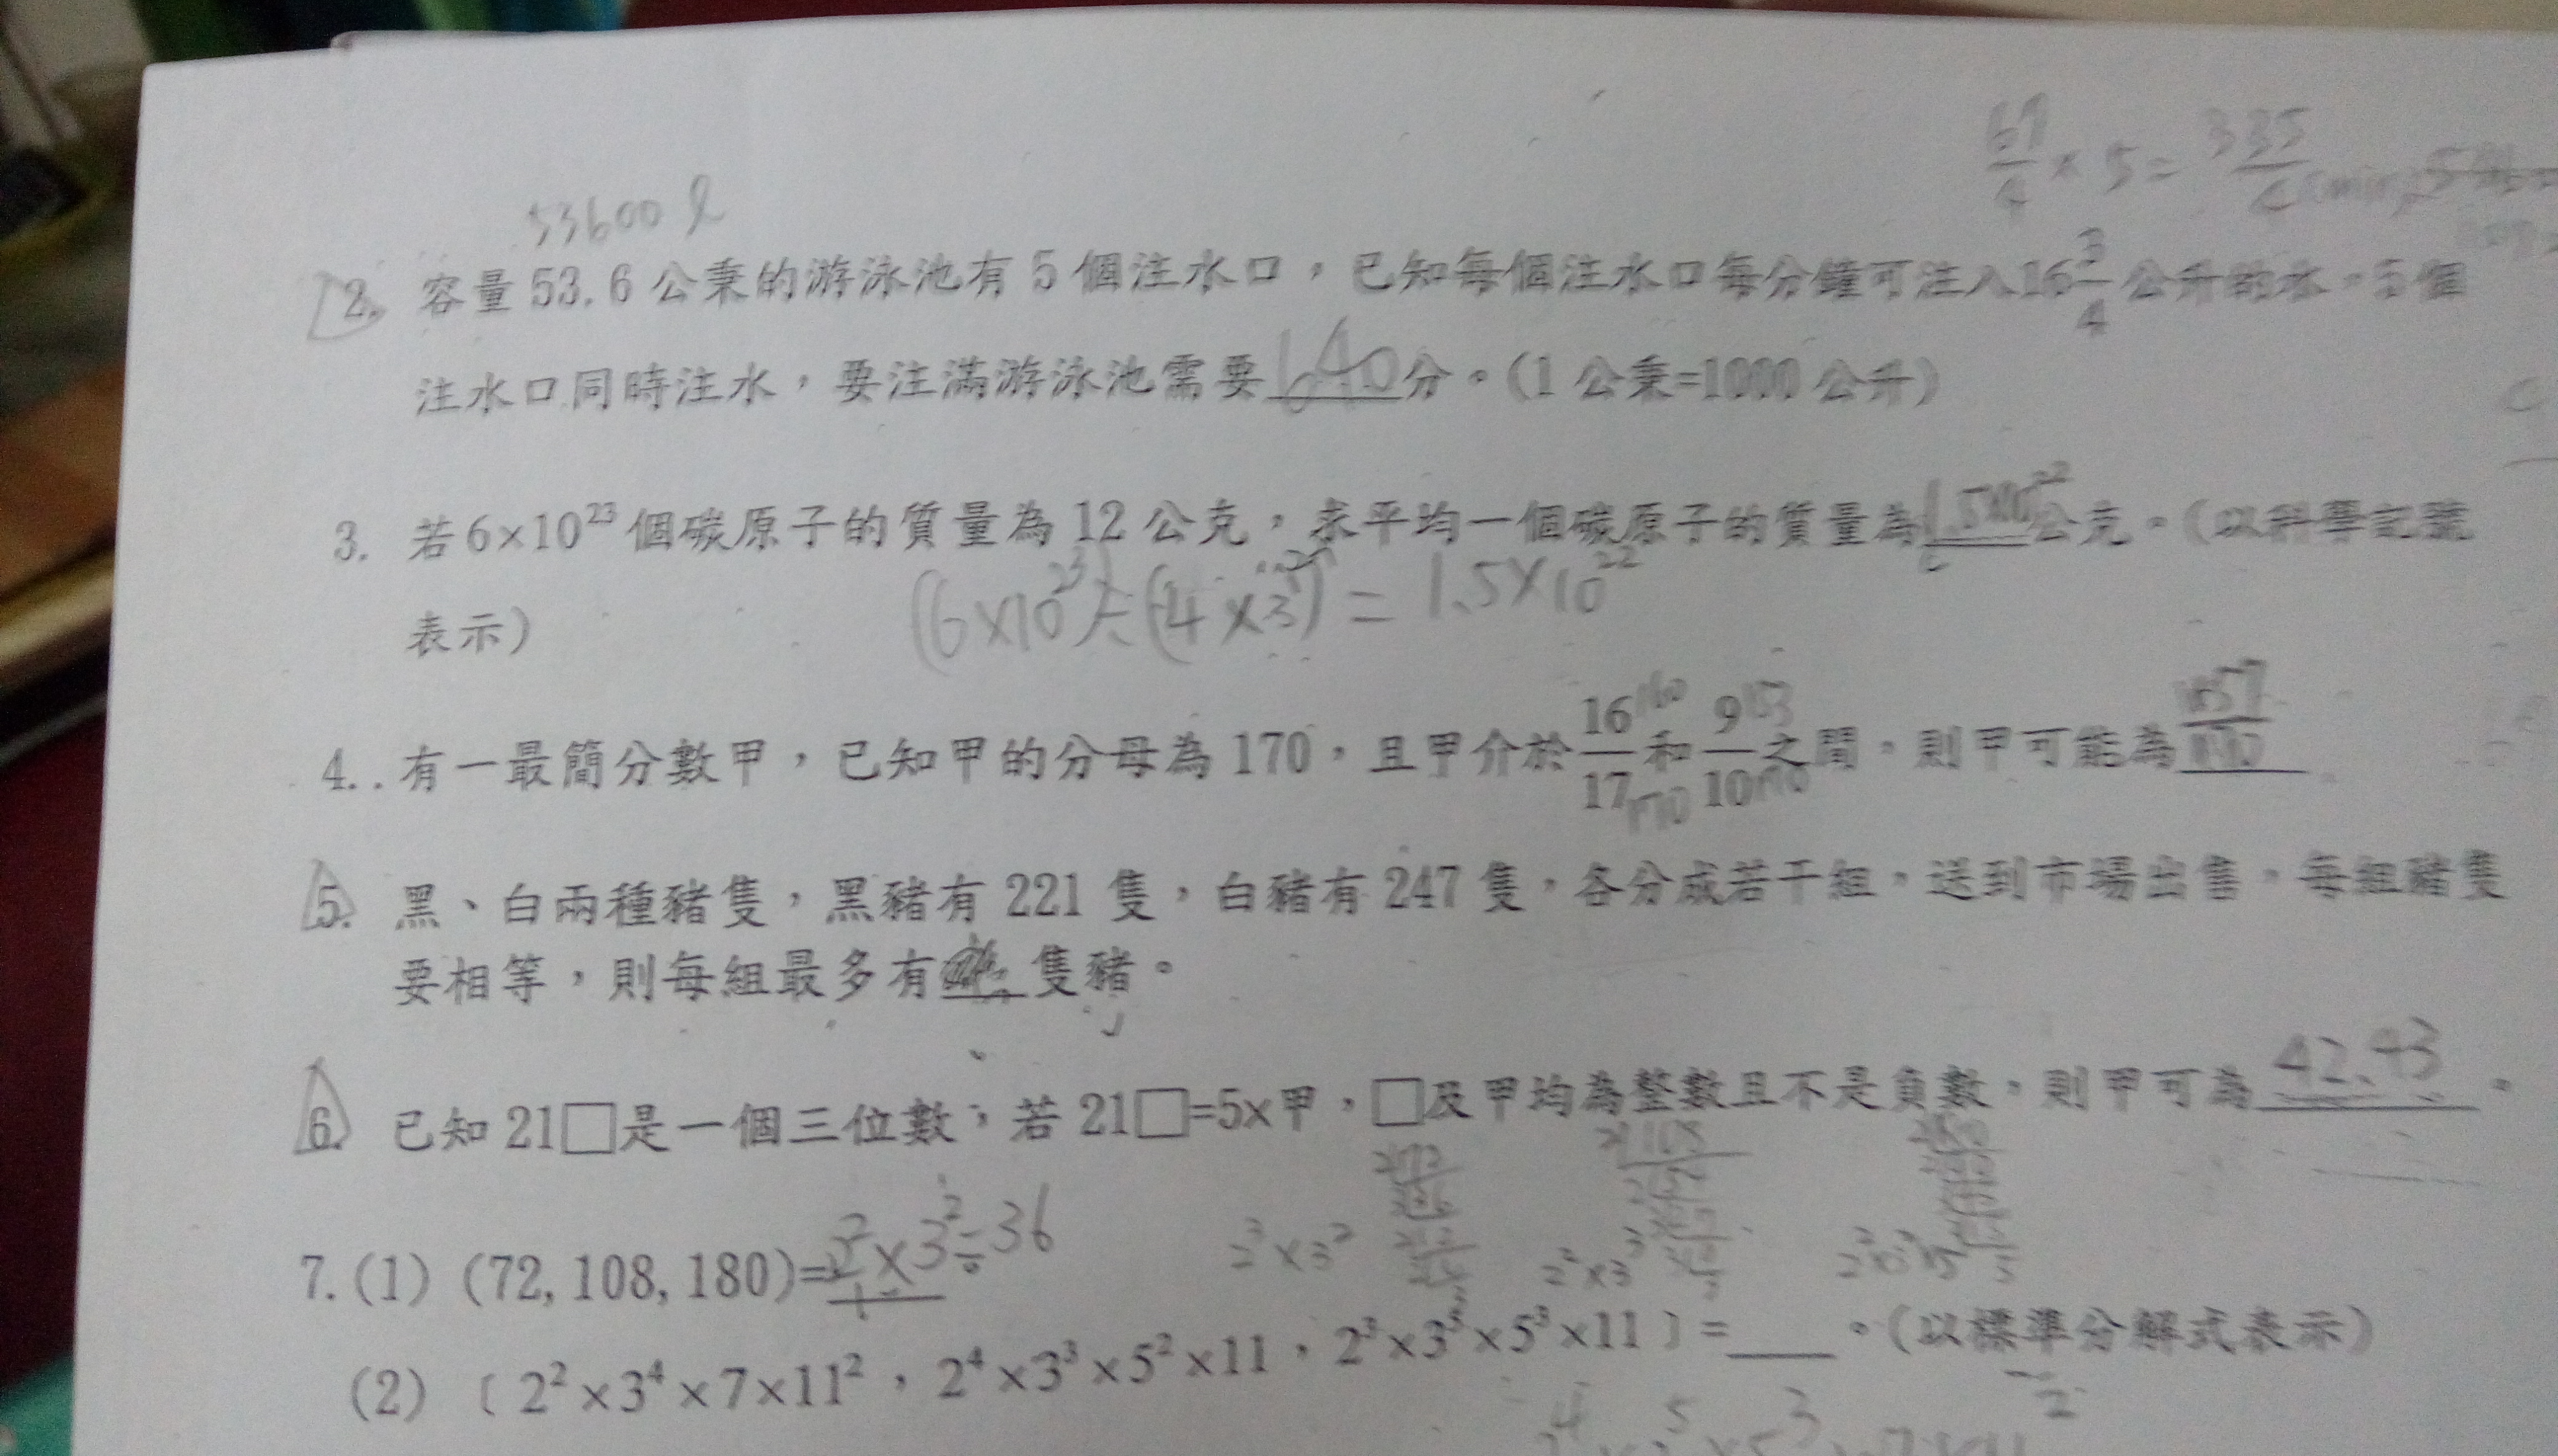 67/4 × 5 = 335/4 (min)
53600 ℓ
2. 容量 53.6 公秉的游泳池有 5 個注水口，已知每個注水口每分鐘可注入16 3/4 公升的水。5 個
注水口同時注水，要注滿游泳池需要640分。(1 公秉=1000 公升)
3. 若 6×10²³ 個碳原子的質量為 12 公克，求平均一個碳原子的質量為1.5×10²²公克。(以科學記號
表示)
(6×10²³)÷(4×3) = 1.5×10²²
4.. 有一最簡分數甲，已知甲的分母為 170，且甲介於 16/17 160/170 和 9/10 153/170 之間，則甲可能為 157/170
5. 黑、白兩種豬隻，黑豬有 221 隻，白豬有 247 隻，各分成若干組，送到市場出售，每組豬隻
要相等，則每組最多有 隻豬。
6. 已知 21□是一個三位數，若 21□=5x甲，□及甲均為整數且不是負數，則甲可為 42.43。
7.(1) (72,108,180)=2²×3²=36
2³×3² 2²×3³ 2²×3²×5
(2) 〔 2²×3⁴×7×11²，2⁴×3³×5²×11，2³×3⁵×5³×11 〕= 。(以標準分解式表示)